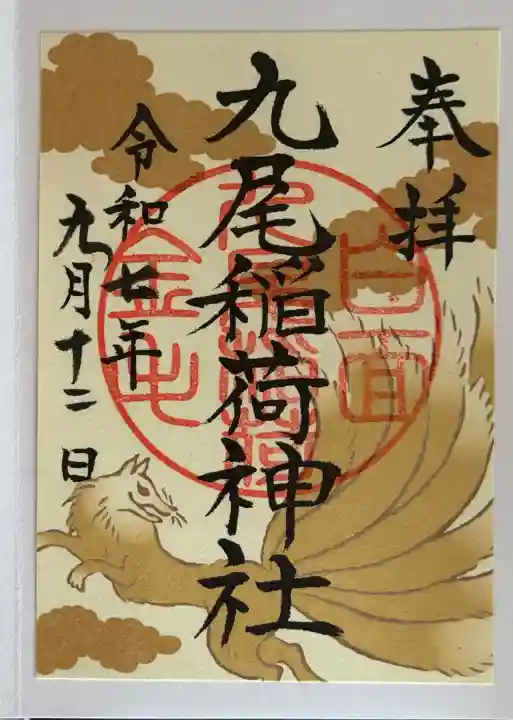 奉拝
白面
九尾稲荷神社
金毛
令和七年
九月十二日